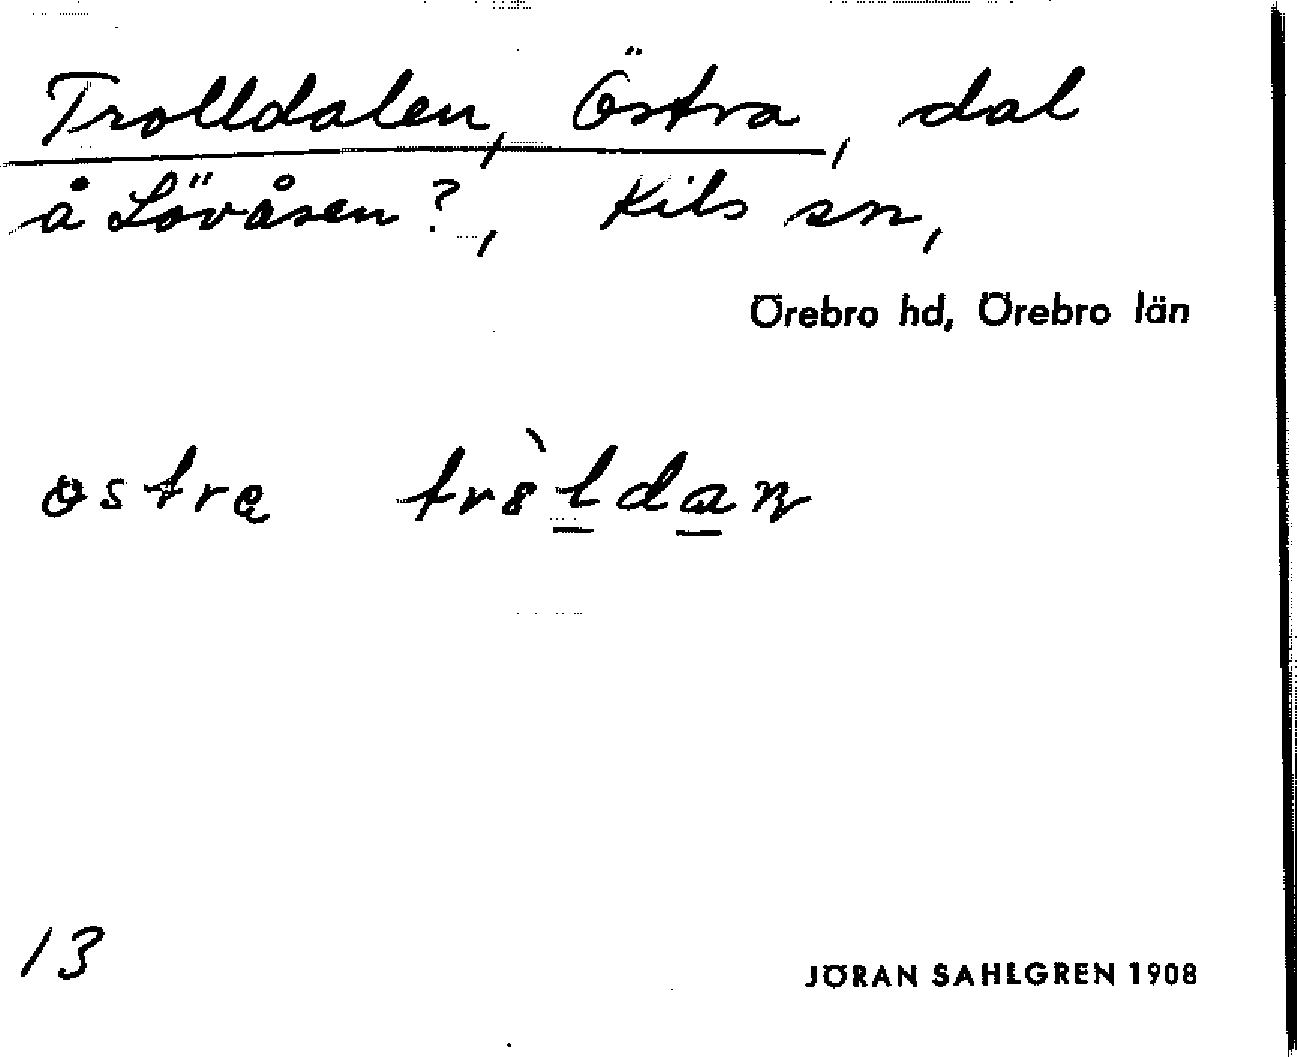 Trolldalen, Östra, dal
å Lövåsen?, Kils sn,
Örebro hd, Örebro län
östra tròldan
13
JÖRAN SAHLGREN 1908